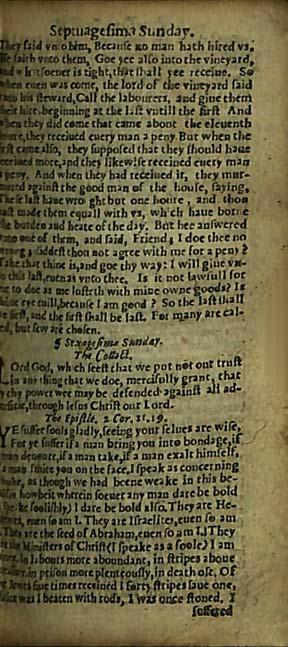 Septuagesima Sunday.
They said vnto him, Because no man hath hired vs.
He saith vnto them, Goe yee also into the vineyard,
and whatsoeuer is right, that shall yee receiue. So
when euen was come, the lord of the vineyard said
vnto his steward, Call the labourers, and giue them
their hire, beginning at the last vntill the first And
when they did come that came about the eleuenth
houre, they receiued euery man a peny. But when the
first came also, they supposed that they should haue
receiued more, and they likewise receiued euery man
a peny. And when they had receiued it, they mur-
mured against the good man of the house, saying,
These last haue wrought but one houre, and thou
hast made them equall with vs, which haue borne
the burden and heate of the day. But hee answered
vnto one of them, and said, Friend, I doe thee no
wrong; diddest thou not agree with me for a peny?
Take that thine is, and goe thy way: I will giue vn-
to this last, euen as vnto thee. Is it not lawfull for
me to doe as me lusteth with mine owne goods? Is
thine eye euill, because I am good? So the last shall
be first, and the first shall be last. For many are cal-
led, but few are chosen.
¶ Sexagesima Sunday.
The Collect.
LOrd God, which seest that we put not our trust
in any thing that we doe, mercifully grant, that
by thy power wee may be defended against all ad-
uersitie, through Iesus Christ our Lord.
The Epistle. 2 Cor. 11.19.
YE suffer fools gladly, seeing your selues are wise,
For ye suffer if a man bring you into bondage, if
a man deuoure, if a man take, if a man exalt himself,
if a man smite you on the face, I speak as concerning
rebuke, as though we had beene weake in this be-
halfe howbeit wherein soeuer any man dare be bold
(I speake foolishly) I dare be bold also. They are He-
brewes, euen so am I. They are Israelites, euen so am
I. They are the seed of Abraham, euen so am I. They
are the Ministers of Christ (I speake as a foole) I am
more. In labours more aboundant, in stripes aboue
measure, in prison more plenteously, in death oft. Of
the Iewes fiue times receiued I forty stripes saue one,
thrice was I beaten with rods, I was once stoned. I
suffered